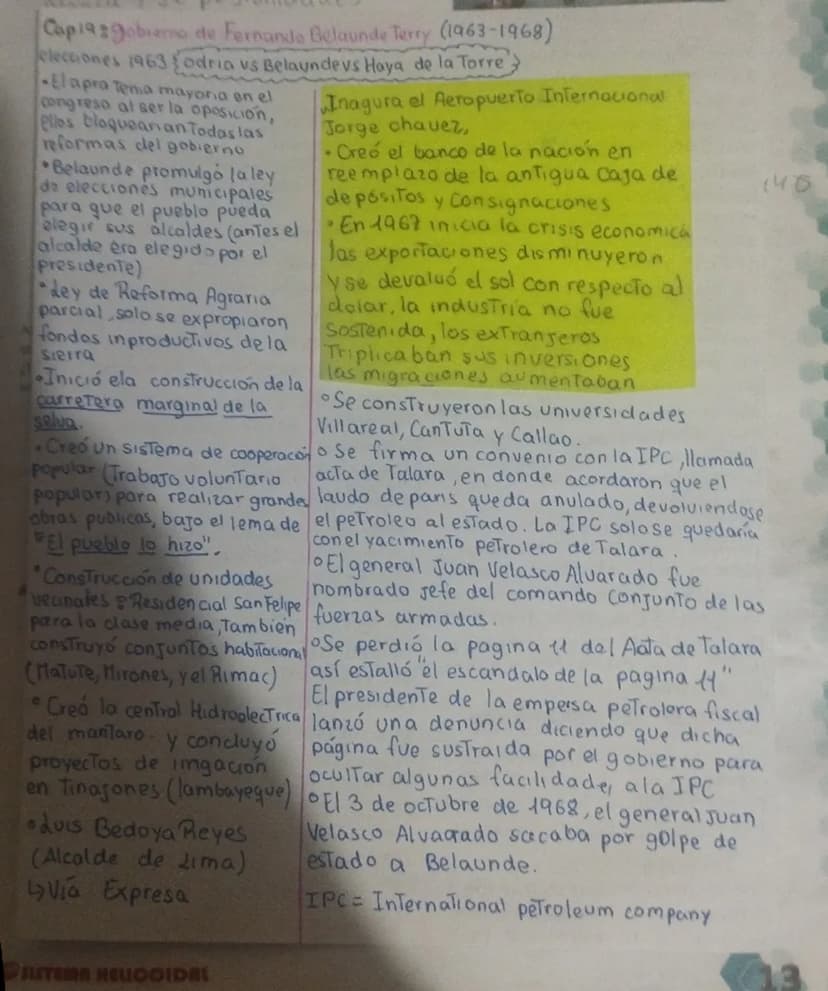 Cap 19: gobierno de Fernando Belaunde Terry (1963-1968)
elecciones 1963 {odria vs Belaunde vs Haya de la Torre}
• El apra Tenia mayoria en el
congreso al ser la oposición,
ellos bloquearian Todas las
reformas del gobierno
• Belaunde promulgó la ley
de elecciones municipales
para que el pueblo pueda
elegir sus alcaldes (antes el
alcalde era elegido por el
presidente)
• Ley de Reforma Agraria
parcial, solo se expropiaron
fondos inproductivos de la
sierra
• Inició ela construcción de la
carretera marginal de la
selva.
• Creó un sistema de cooperación
popular (Trabajo voluntario
popular) para realizar grandes
obras publicas, bajo el lema de
"El pueblo lo hizo".
• Construcción de unidades
vecinales: Residencial San Felipe
para la clase media, Tambien
construyó conjuntos habitacional
(Matute, Mirones, y el Rimac)
• Creó la central Hidroelectrica
del mantaro y concluyó
proyectos de irrigación
en Tinajones (lambayeque)
• Luis Bedoya Reyes
(Alcalde de Lima)
↳ Vía Expresa
Inagura el Aeropuerto Internacional
Jorge chavez,
• Creó el banco de la nación en
reemplazo de la antigua Caja de
depósitos y consignaciones
• En 1967 inicia la crisis economica
las exportaciones disminuyeron
y se devaluó el sol con respecto al
dolar, la industria no fue
sostenida, los extranjeros
Triplicaban sus inversiones
las migraciones aumentaban
• Se construyeron las universidades
Villareal, Cantuta y Callao.
• Se firma un convenio con la IPC, llamada
acta de Talara, en donde acordaron que el
laudo de paris queda anulado, devolviendose
el petroleo al estado. La IPC solo se quedaría
con el yacimiento petrolero de Talara.
• El general Juan Velasco Alvarado fue
nombrado jefe del comando conjunto de las
fuerzas armadas.
• Se perdió la pagina 11 del Acta de Talara
así estalló "el escandalo de la pagina 11"
El presidente de la empersa petrolera fiscal
lanzó una denuncia diciendo que dicha
página fue sustraida por el gobierno para
ocultar algunas facilidade, a la IPC
• El 3 de octubre de 1968, el general Juan
Velasco Alvarado sacaba por golpe de
estado a Belaunde.
IPC = International petroleum company
SISTEMA HELICOIDAL
13